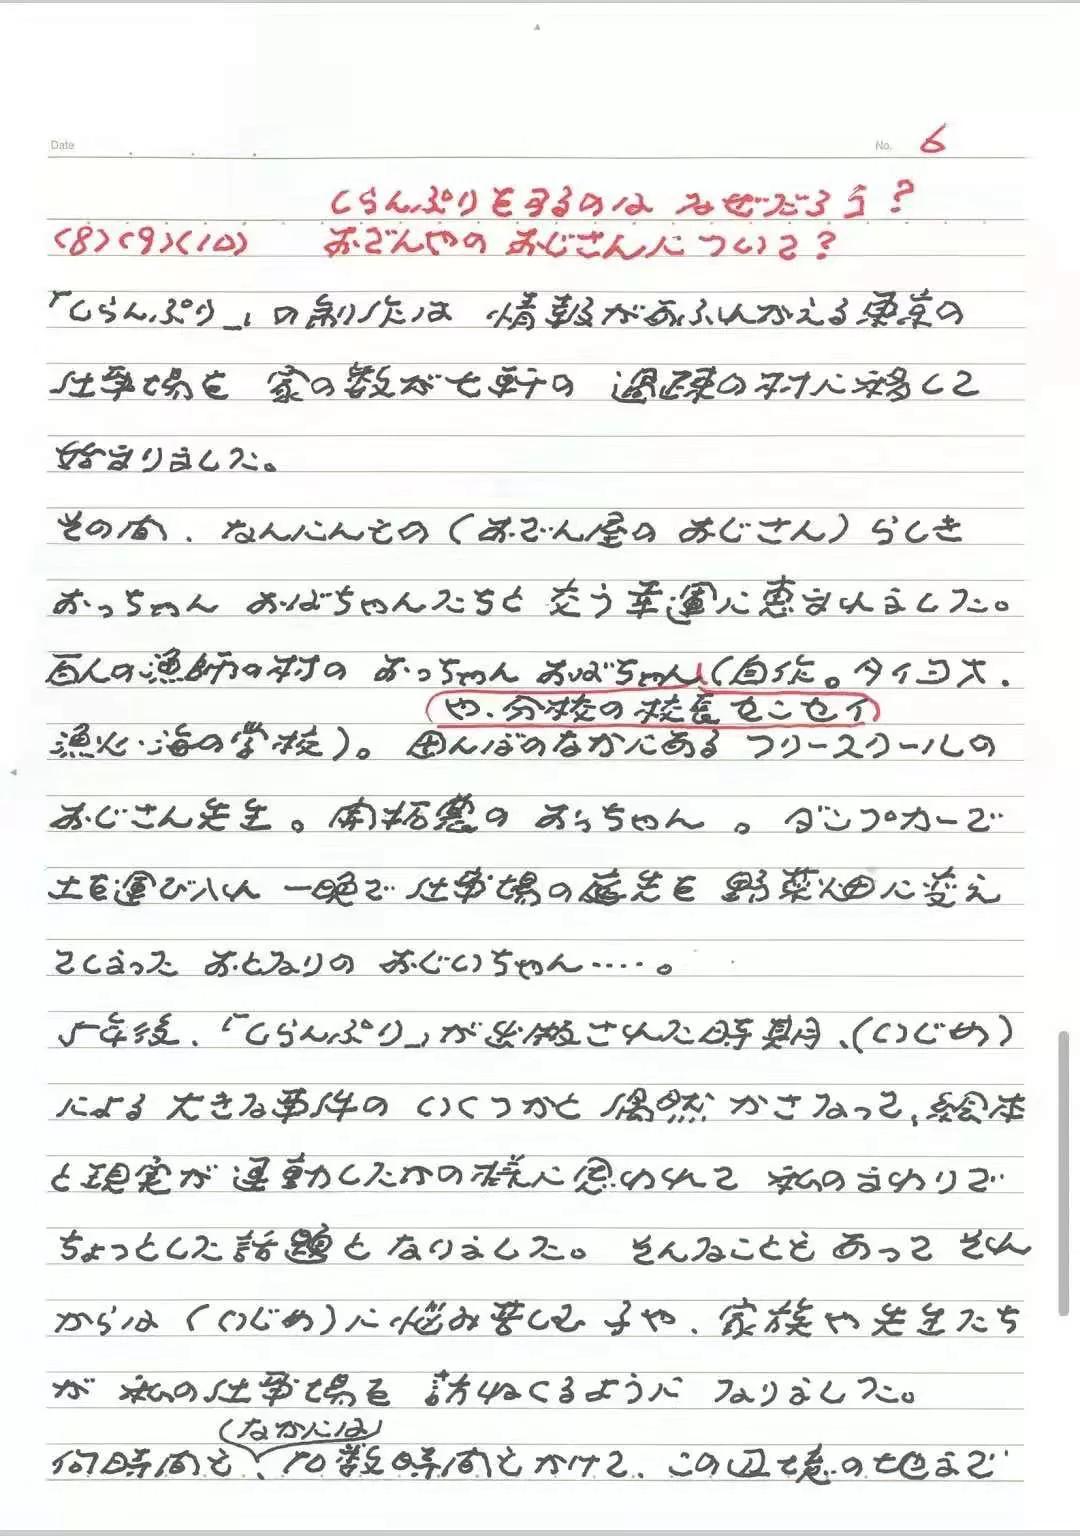 Date
No. 6
しらんぷりをするのは なぜだろう?
(8)(9)(10) おでんやの おじさんについて?
「しらんぷり」の制作は 情報があふれかえる東京の
仕事場を 家の数が七軒の 過疎の村に移して
始まりました。
その間、なんにんもの(おでん屋の おじさん)らしき
おっちゃん おばちゃんたちと 交う幸運に恵まれました。
百人の漁師の村の おっちゃん おばちゃん(自作。タイヨオ、
や、分校の校長センセイ
漁火・海の学校)。田んぼのなかにある フリースクールの
おじさん先生。開拓農の おっちゃん 。ダンプカーで
土を運び入れ 一晩で 仕事場の庭先を 野菜畑に変え
てしまった おとなりの おじいちゃん……。
5年後、「しらんぷり」が出版された時期、(いじめ)
による 大きな事件の いくつかと 偶然 かさなって、絵本
と現実が 連動したかの様に思われて 私のまわりで
ちょっとした話題と なりました。 そんなことも あって それ
からは(いじめ)に悩み苦しむ 子や、家族や先生たち
が 私の仕事場を 訪ねくるように なりました。
(なかには)
何時間も、10数時間もかけて、この辺境の地まで